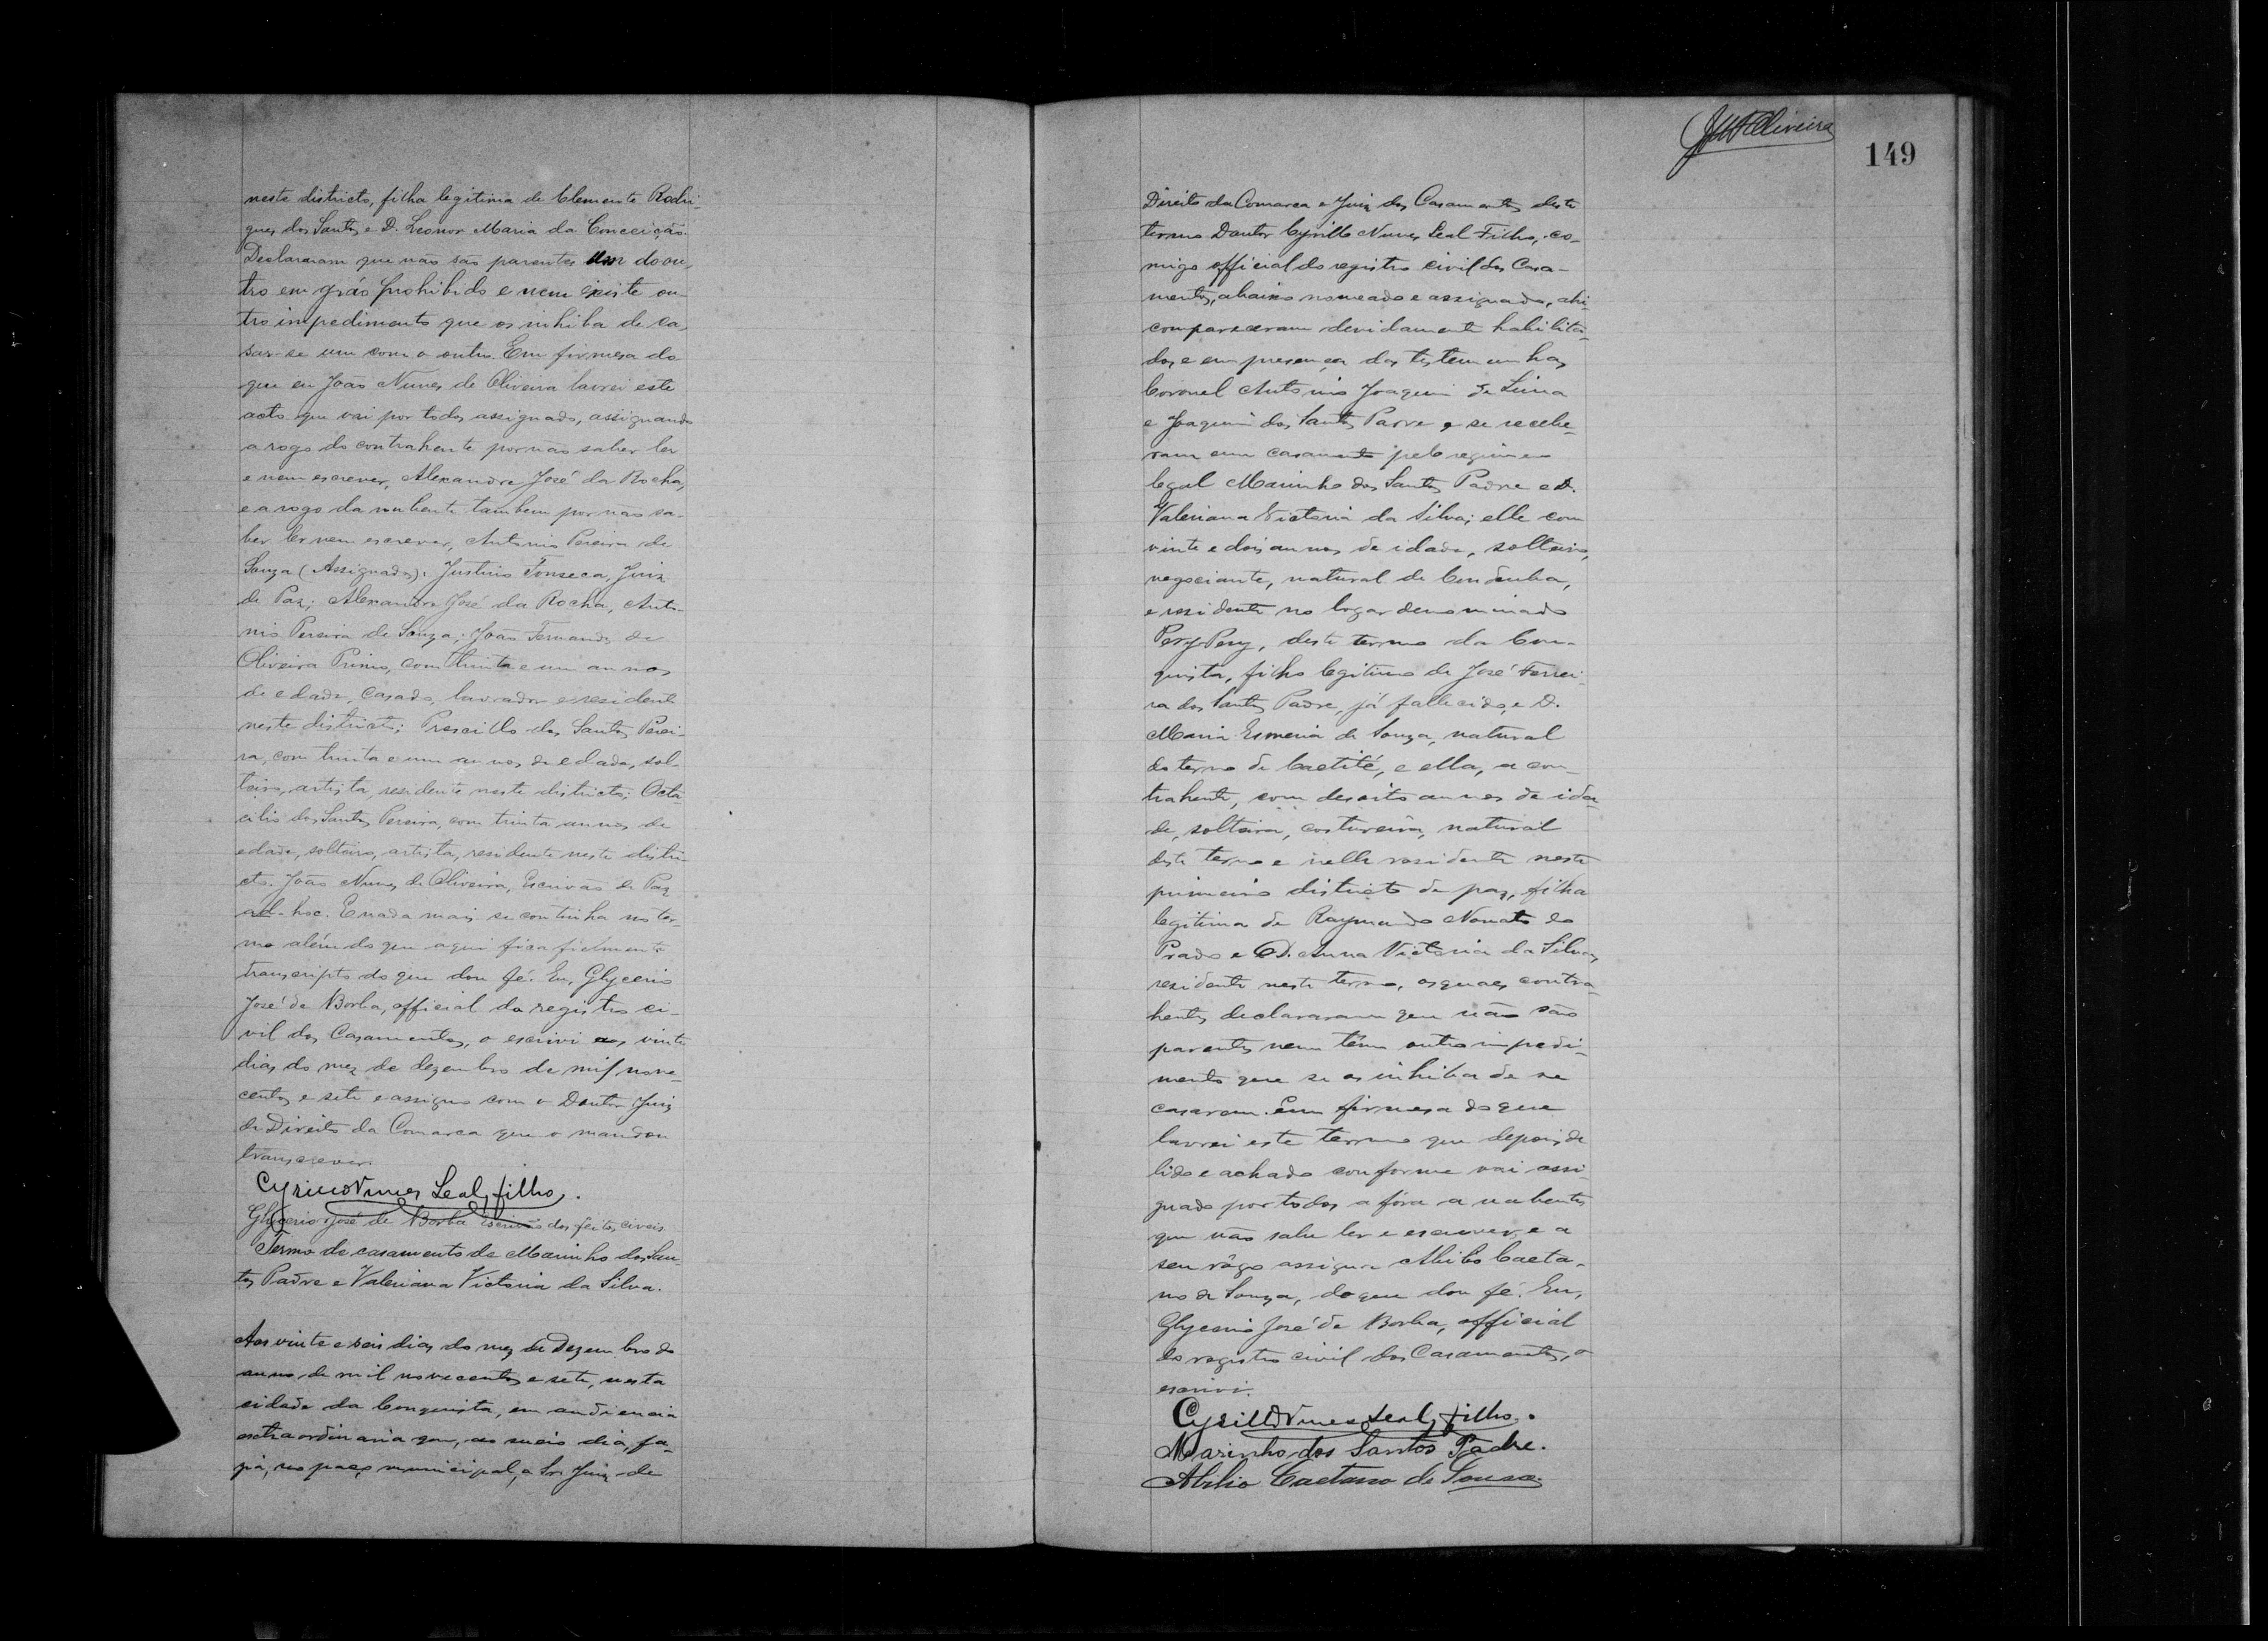 neste districto, filha legitima de Clemente Rodri-
gues dos Santos e D. Leonor Maria da Conceição.
Declararam que não são parentes um do ou-
tro em gráo prohibido e nem existe ou-
tro impedimento que os inhiba de ca-
sar-se um com o outro. Em firmesa do
que eu João Nunes de Oliveira lavrei este
acto que vai por todos assignado, assignando
a rogo do contrahente por não saber ler
e nem escrever, Alexandre José da Rocha,
e a rogo da nubente tambem por não sa-
ber ler nem escrever, Antonio Pereira de
Souza (Assignados). Justino Fonseca, Juiz
de Paz; Alexandre José da Rocha, Anto-
nio Pereira de Souza; João Fernandes de
Oliveira Primo, com trinta e um annos
de edade, casado, lavrador e residente
neste districto; Prescillo dos Santos Perei-
ra, com trinta e um annos de edade, sol-
teiro, artista, residente neste districto; Octa-
cilio dos Santos Pereira, com trinta annos de
edade, solteiro, artista, residente neste distri-
cto. João Nunes de Oliveira, Escrivão de Paz
ad-hoc. E nada mais se continha no ter-
mo além do que aqui fica fielmente
transcripto do que dou fé. Eu, Glycerio
José de Borba, official do registro ci-
vil dos Casamentos, o escrivi aos vinte
dias do mez de dezembro de mil nove-
centos e sete e assigno com o Doutor Juiz
de Direito da Comarca que o mandou
transcrever.
Cyrillo Nunes Leal, filho.
Glycerio José de Borba escrivão dos feitos civeis
Termo de casamento de Marinho dos San-
tos Padre e Valeriana Victoria da Silva.
Aos vinte e seis dias do mez de Dezembro do
anno de mil novecentos e sete, nesta
cidade da Conquista, em audiencia
extraordinaria que, ao meio dia, fa-
zia, no paço municipal, o Sr. Juiz de
JNFOliveira
149
Direito da Comarca e Juiz dos Casamentos deste
termo Doutor Cyrillo Nunes Leal Filho, co-
migo official do registro civil dos Casa-
mentos, abaixo nomeado e assignado, ahi
compareceram devidamente habilita-
dos e em presença das testemunhas
Coronel Antonio Joaquim de Lima
e Joaquim dos Santos Padre e se recebe-
ram em casamento pelo regimen
legal Marinho dos Santos Padre e D.
Valeriana Victoria da Silva; elle com
vinte e dois annos de idade, solteiro,
negociante, natural de Condeuba,
e residente no logar denominado
Pery-Pery, deste termo da Con-
quista, filho legitimo de José Ferrei-
ra dos Santos Padre, já fallecido, e D.
Maria Esmeria de Souza, natural
do termo de Caetité, e ella, a con-
trahente, com desoito annos de ida-
de, solteira, costureira, natural
deste termo e nelle residente neste
primeiro districto de paz, filha
legitima de Raymundo Nonato do
Prado e D. Anna Victoria da Silva,
residente neste termo, os quaes contra-
hentes declararam que não são
parentes nem têm outro impedi-
mento que se os inhiba de se
casarem. Em firmesa do que
lavrei este termo que depois de
lido e achado conforme vai assi-
gnado por todos a fóra a nubente
que não sabe ler e escrever, e a
seu rôgo assigna Abilio Caeta-
no de Souza, do que dou fé. Eu,
Glycerio José de Borba, official
do registro civil dos Casamentos, o
escrivi.
Cyrillo Nunes Leal, filho.
Marinho dos Santos Padre.
Abilio Caetano de Souza.